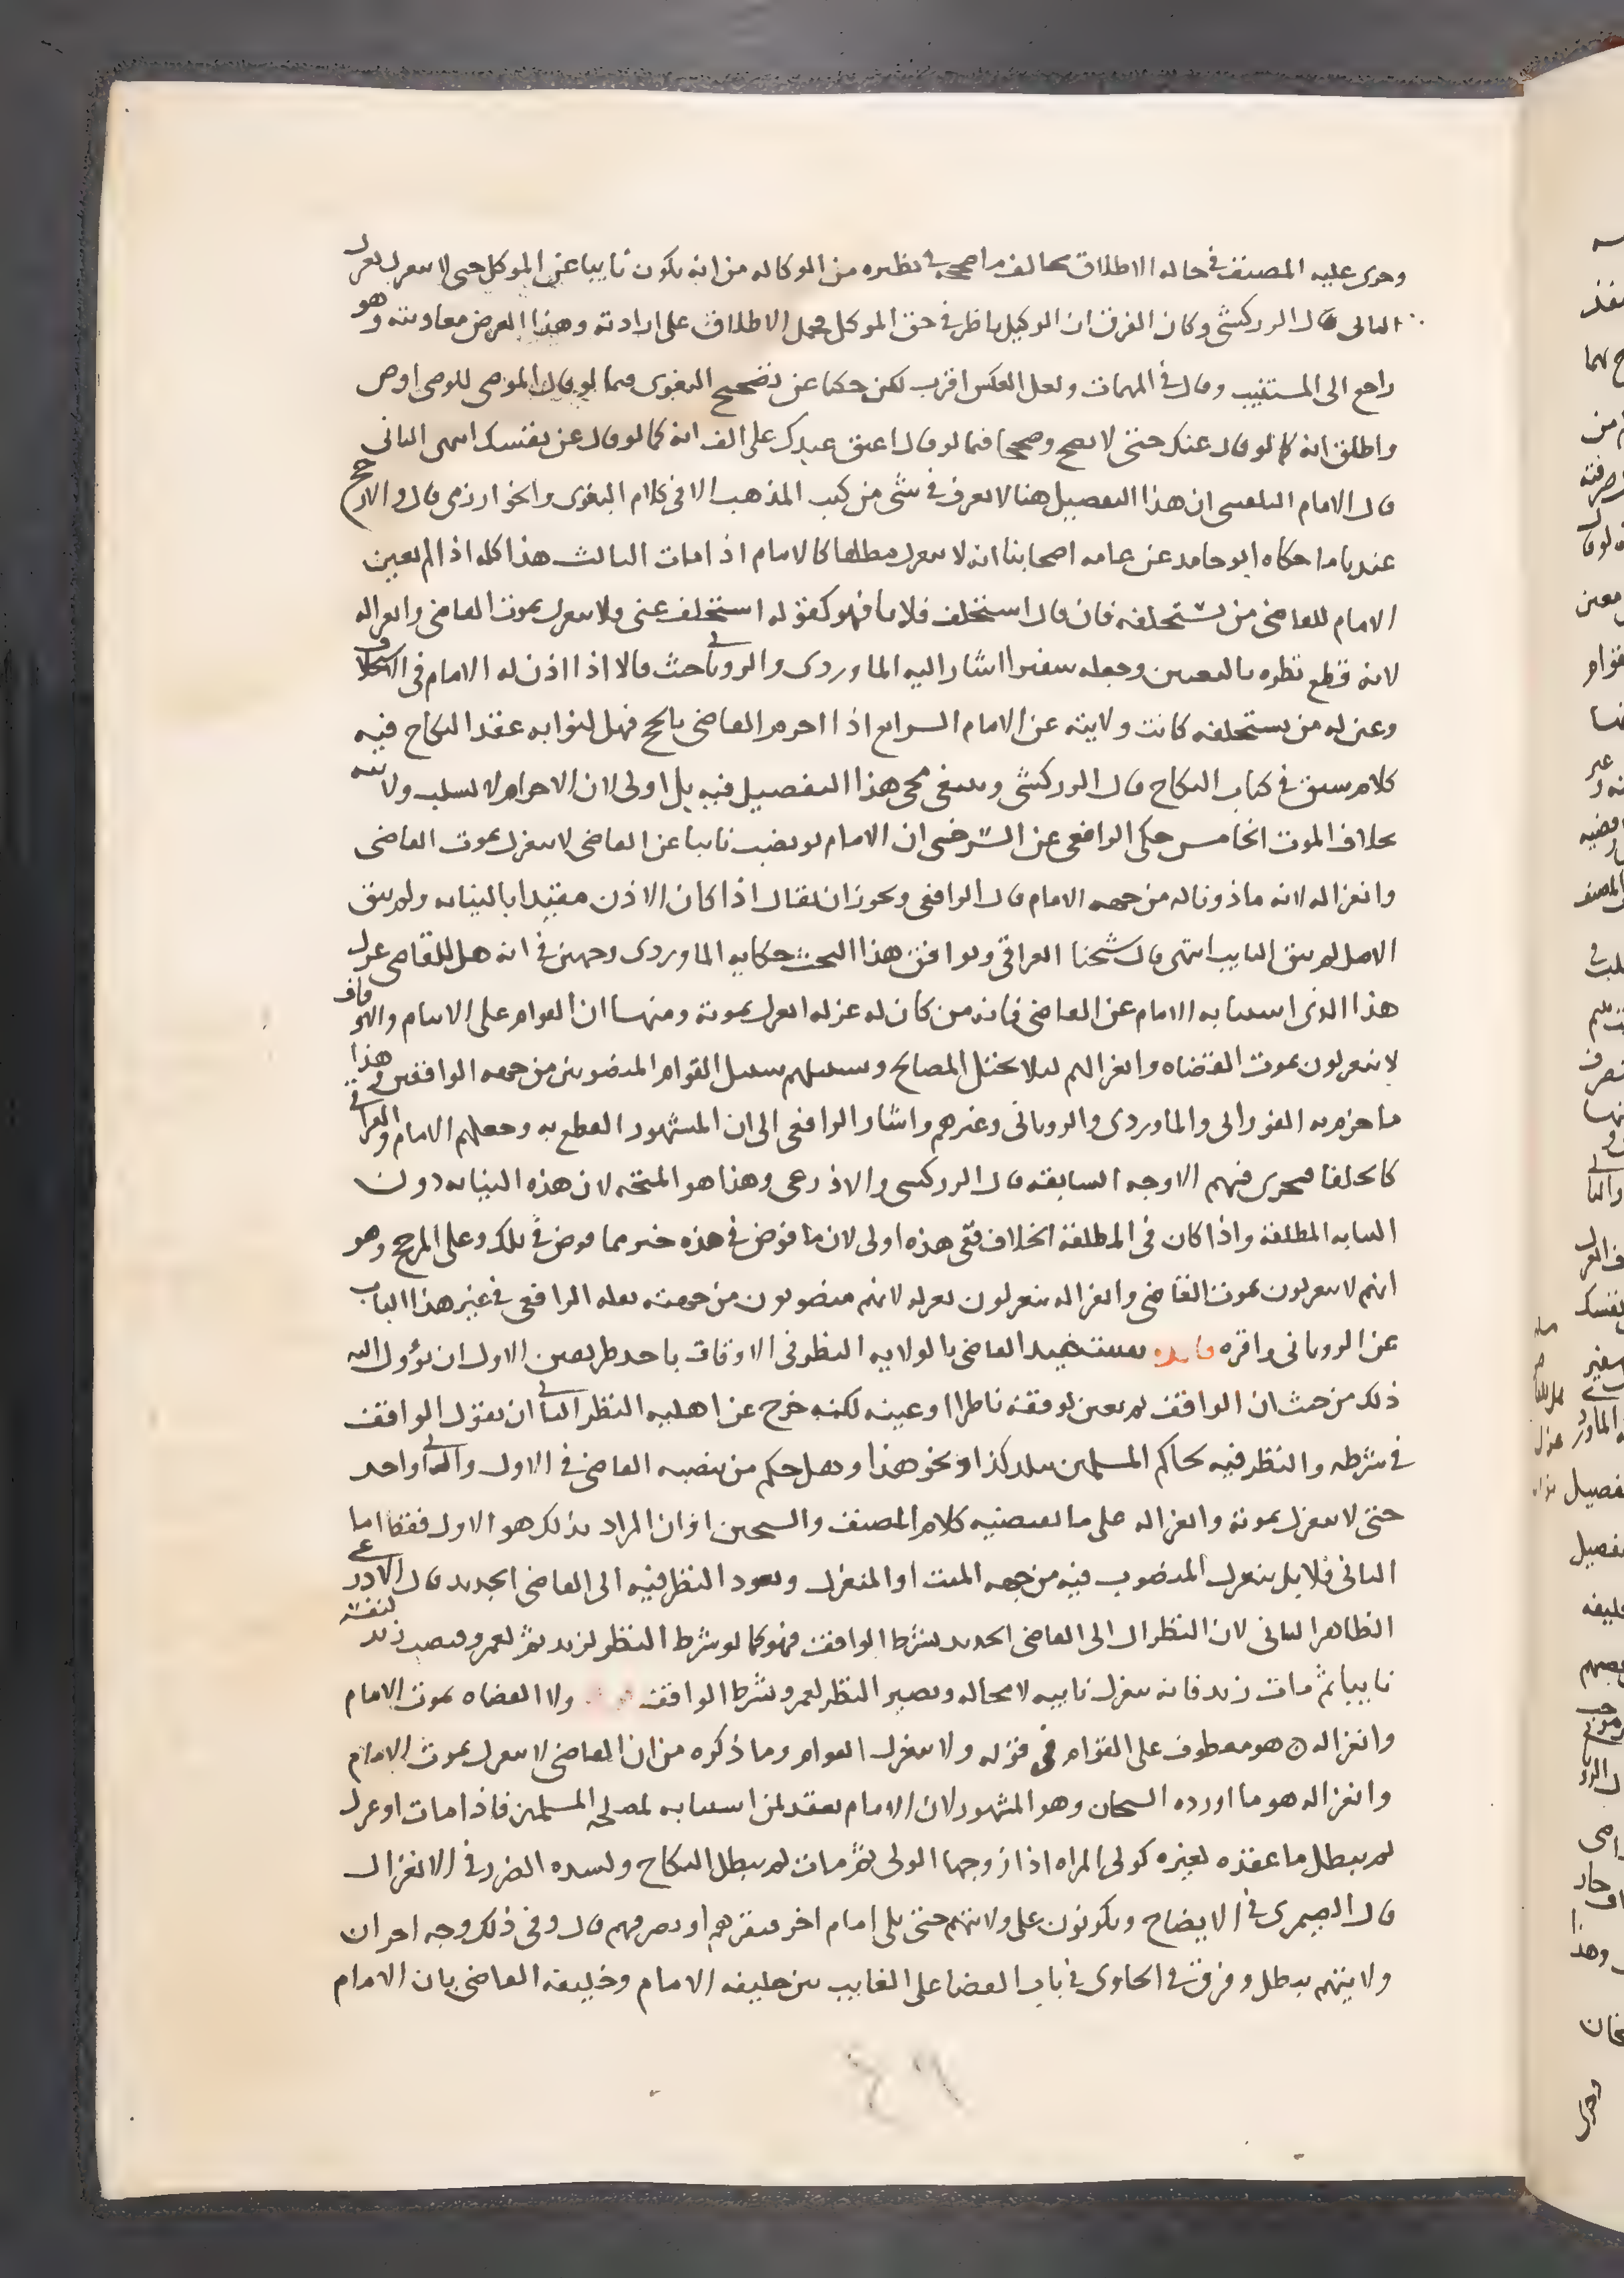 وجرى عليه المصنف في حاله الاطلاق يخالف ما صححه في نظيره من الوكاله من انه يكون نايبا عن الموكل حتى لا ينعزل بعزل
الثاني قال الزركشي وكان الفرق ان الوكيل ناظر في حق الموكل فحمل الاطلاق على ارادته وهذا الغرض معاونته وهو
راجع الى المستنيب وقال في المهمات ولعل العكس اقرب لكن حكيا عن تصحيح البغوى فيما لو قال الموصى للوصى اوص
واطلق انه كما لو قال عنك حتى لا يصح وصححا فيما لو قال اعتق عبدك على الف انه كما لو قال عن نفسك انتهى الثاني
قال الامام البلقيني ان هذا التفصيل هنا لا يعرف في شي من كتب المذهب الا في كلام البغوى والخوارزمى قال والارجح
عندنا ما حكاه ابو حامد عن عامه اصحابنا انه لا ينعزل مطلقا كالامام اذا مات الثالث هذا كله اذا لم يعين
الامام للقاضي من يستخلفه فان قال استخلف فلانا فهو كقوله استخلف عنى ولا ينعزل بموت القاضي وانعزاله
لانه قطع نظره بالتعيين وجعله سفيرا اشار اليه الماوردى والروياني حيث قالا اذا اذن له الامام في الاستخلاف
وعين له من يستخلفه كانت ولايته عن الامام الرابع اذا احرم القاضي بالحج فهل لنوابه عقد النكاح فيه
كلام سبق في كتاب النكاح قال الزركشي وينبغي مجى هذا التفصيل فيه بل اولى لان الاحرام لا يسلب ولايته
بخلاف الموت الخامس حكى الرافعى عن السرخسى ان الامام لو نصب نايبا عن القاضي لا ينعزل بموت القاضي
وانعزاله لانه ماذونا له من جهه الامام قال الرافعى ويجوز ان يقال اذا كان الاذن مقيدا بالنيابه ولم يبق
الاصل لم يبق النايب انتهى قال شيخنا العراقى ويوافق هذا البحث حكايه الماوردى وجهين في انه هل للقاضي عزل
هذا الذى استنابه الامام عن القاضي فانه من كان له عزله انعزل بموته ومنها ان القوام على الايتام والاوقاف
لا ينعزلون بموت القضاه وانعزالهم ليلا يختل المصالح وسبيلهم سبيل القوام المنصوبين من جهه الواقفين وهذا
ما جزم به الفورانى والماوردى والرويانى وغيرهم واشار الرافعى الى ان المشهور القطع به وجعلهم الامام والغزالى
كالخلفا فيجرى فيهم الاوجه السابقه قال الزركشى والاذرعى وهذا هو المتجه لان هذه النيابه دون
النيابه المطلقه واذا كان في المطلقه الخلاف ففى هذه اولى لان ما فوض في هذه خير مما فوض في تلك وعلى المرجح وهو
انهم لا ينعزلون بموت القاضي وانعزاله ينعزلون بعزله لانهم منصوبون من جهته نقله الرافعى في غير هذا الباب
عن الرويانى واقره فايده يستفيد القاضي بالولايه النظر في الاوقاف باحد طريقين الاول ان يؤول اليه
ذلك من حيث ان الواقف لم يعين لوقفه ناظرا او عينه لكنه خرج عن اهليه النظر الثاني ان يقول الواقف
في شرطه والنظر فيه لحاكم المسلمين ببلد كذا ونحو هذا وهل حكم من ينصبه القاضي في الاول والثاني واحد
حتى لا ينعزل بموته وانعزاله على ما يقتضيه كلام المصنف والشيخين او ان المراد بذلك هو الاول فقط اما
الثانى فلا بل ينعزل المنصوب فيه من جهه الميت او المنعزل ويعود النظر فيه الى القاضي الجديد قال الاذرعى
الظاهر الثانى لان النظر ال الى القاضي الجديد بشرط الواقف فهو كما لو شرط النظر لزيد ثم لعمرو فنصب زيد لنفسه
نايبا ثم مات زيد فانه ينعزل نايبه لا محاله ويصير النظر لعمرو بشرط الواقف ولا القضاه بموت الامام
وانعزاله هو معطوف على القوام في قوله ولا ينعزل القوام وما ذكره من ان القاضي لا ينعزل بموت الامام
وانعزاله هو ما اورده الشيخان وهو المشهور لان الامام يعقد لمن استنابه لمصلحه المسلمين فاذا مات او عزل
لم يبطل ما عقده لغيره كولى المراه اذا زوجها الولى ثم مات لم يبطل النكاح ولشده الضرر في الانعزال
قال الصيمرى في الايضاح ويكونون على ولايتهم حتى يلى امام اخر فيقرهم او يصرفهم قال وفى ذلك وجه اخر ان
ولايتهم تبطل وفرق في الحاوى في باب القضا على الغايب بين خليفه الامام وخليفه القاضي بان الامام